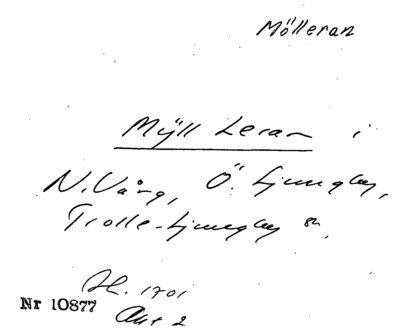 Mölleran
Mÿll Leran i
N. Vång, Ö. Ljungby,
Trolle-Ljungby sn,
H. 1701
Nr 10877 Akt 2